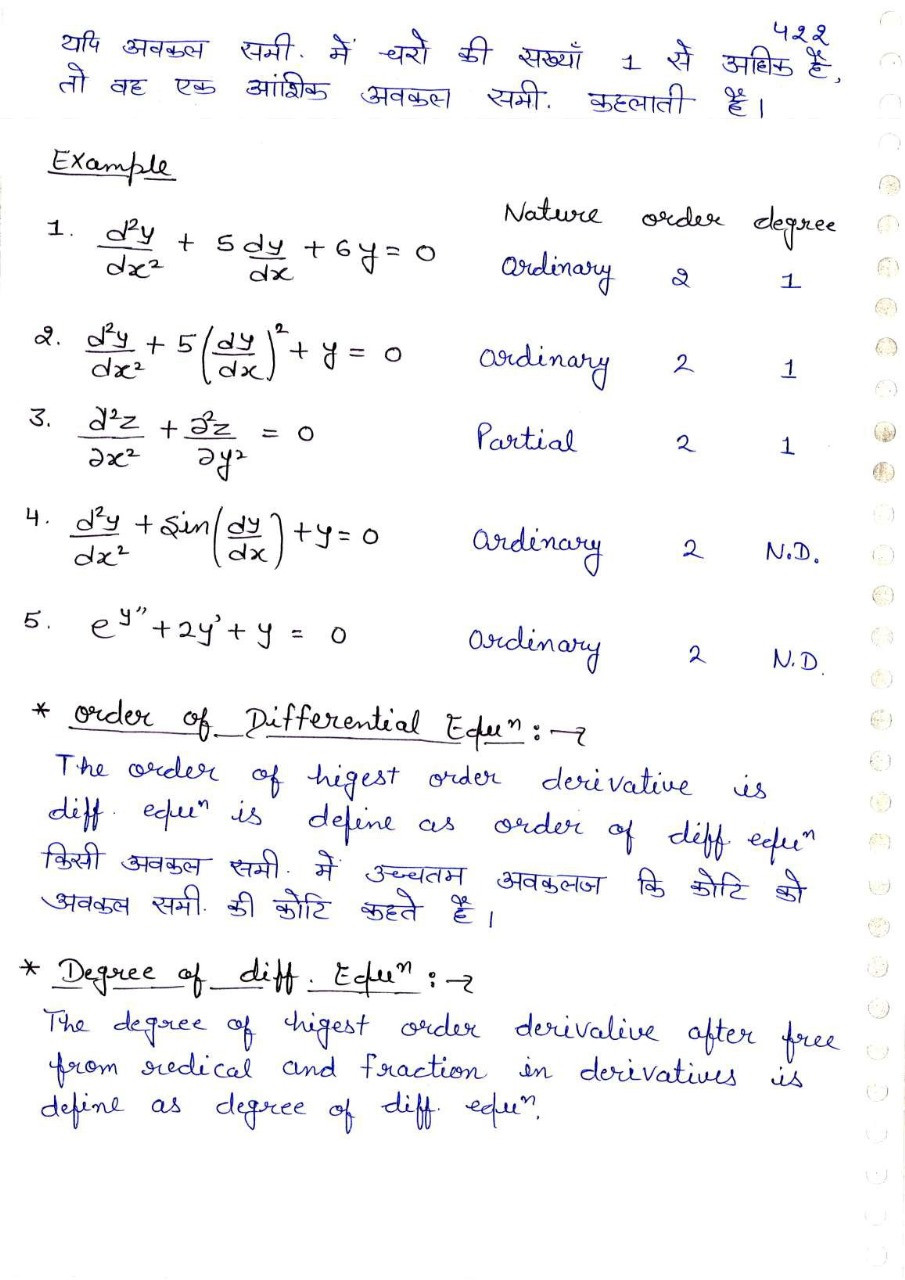 422
यदि अवकल समी. में चरो की सख्याँ 1 से अधिक हैं,
तो वह एक आंशिक अवकल समी. कहलाती हैं।
Example
Nature order degree
1. d²y/dx² + 5 dy/dx + 6y = 0 Ordinary 2 1
2. d²y/dx² + 5(dy/dx)² + y = 0 Ordinary 2 1
3. ∂²z/∂x² + ∂²z/∂y² = 0 Partial 2 1
4. d²y/dx² + Sin(dy/dx) + y = 0 Ordinary 2 N.D.
5. e^y'' + 2y' + y = 0 Ordinary 2 N.D.
* Order of Differential Equⁿ :→
The order of higest order derivative is
diff. equⁿ is define as order of diff equⁿ
किसी अवकल समी. में उच्चतम अवकलज कि कोटि को
अवकल समी. की कोटि कहते हैं।
* Degree of diff. Equⁿ :→
The degree of higest order derivative after free
from redical and fraction in derivatives is
define as degree of diff. equⁿ.